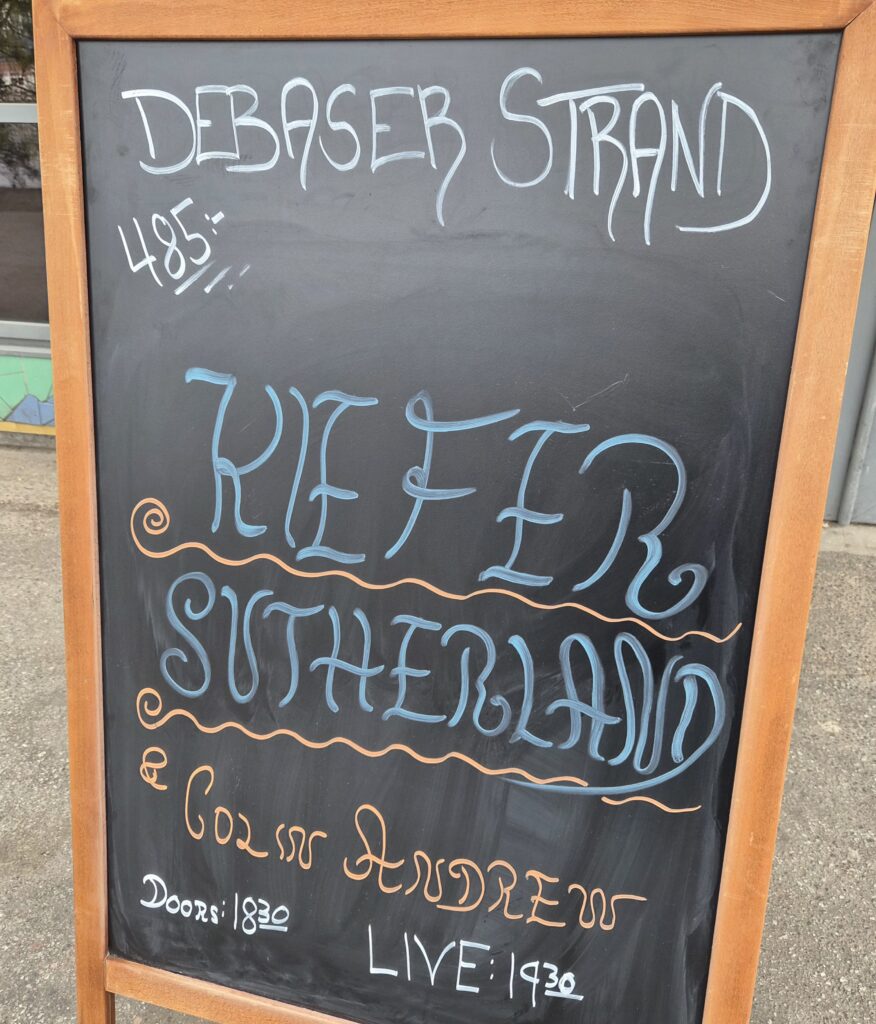 DEBASER STRAND
485:-
KIEFER
SUTHERLAND
& COLIN ANDREW
DOORS: 1830
LIVE: 1930